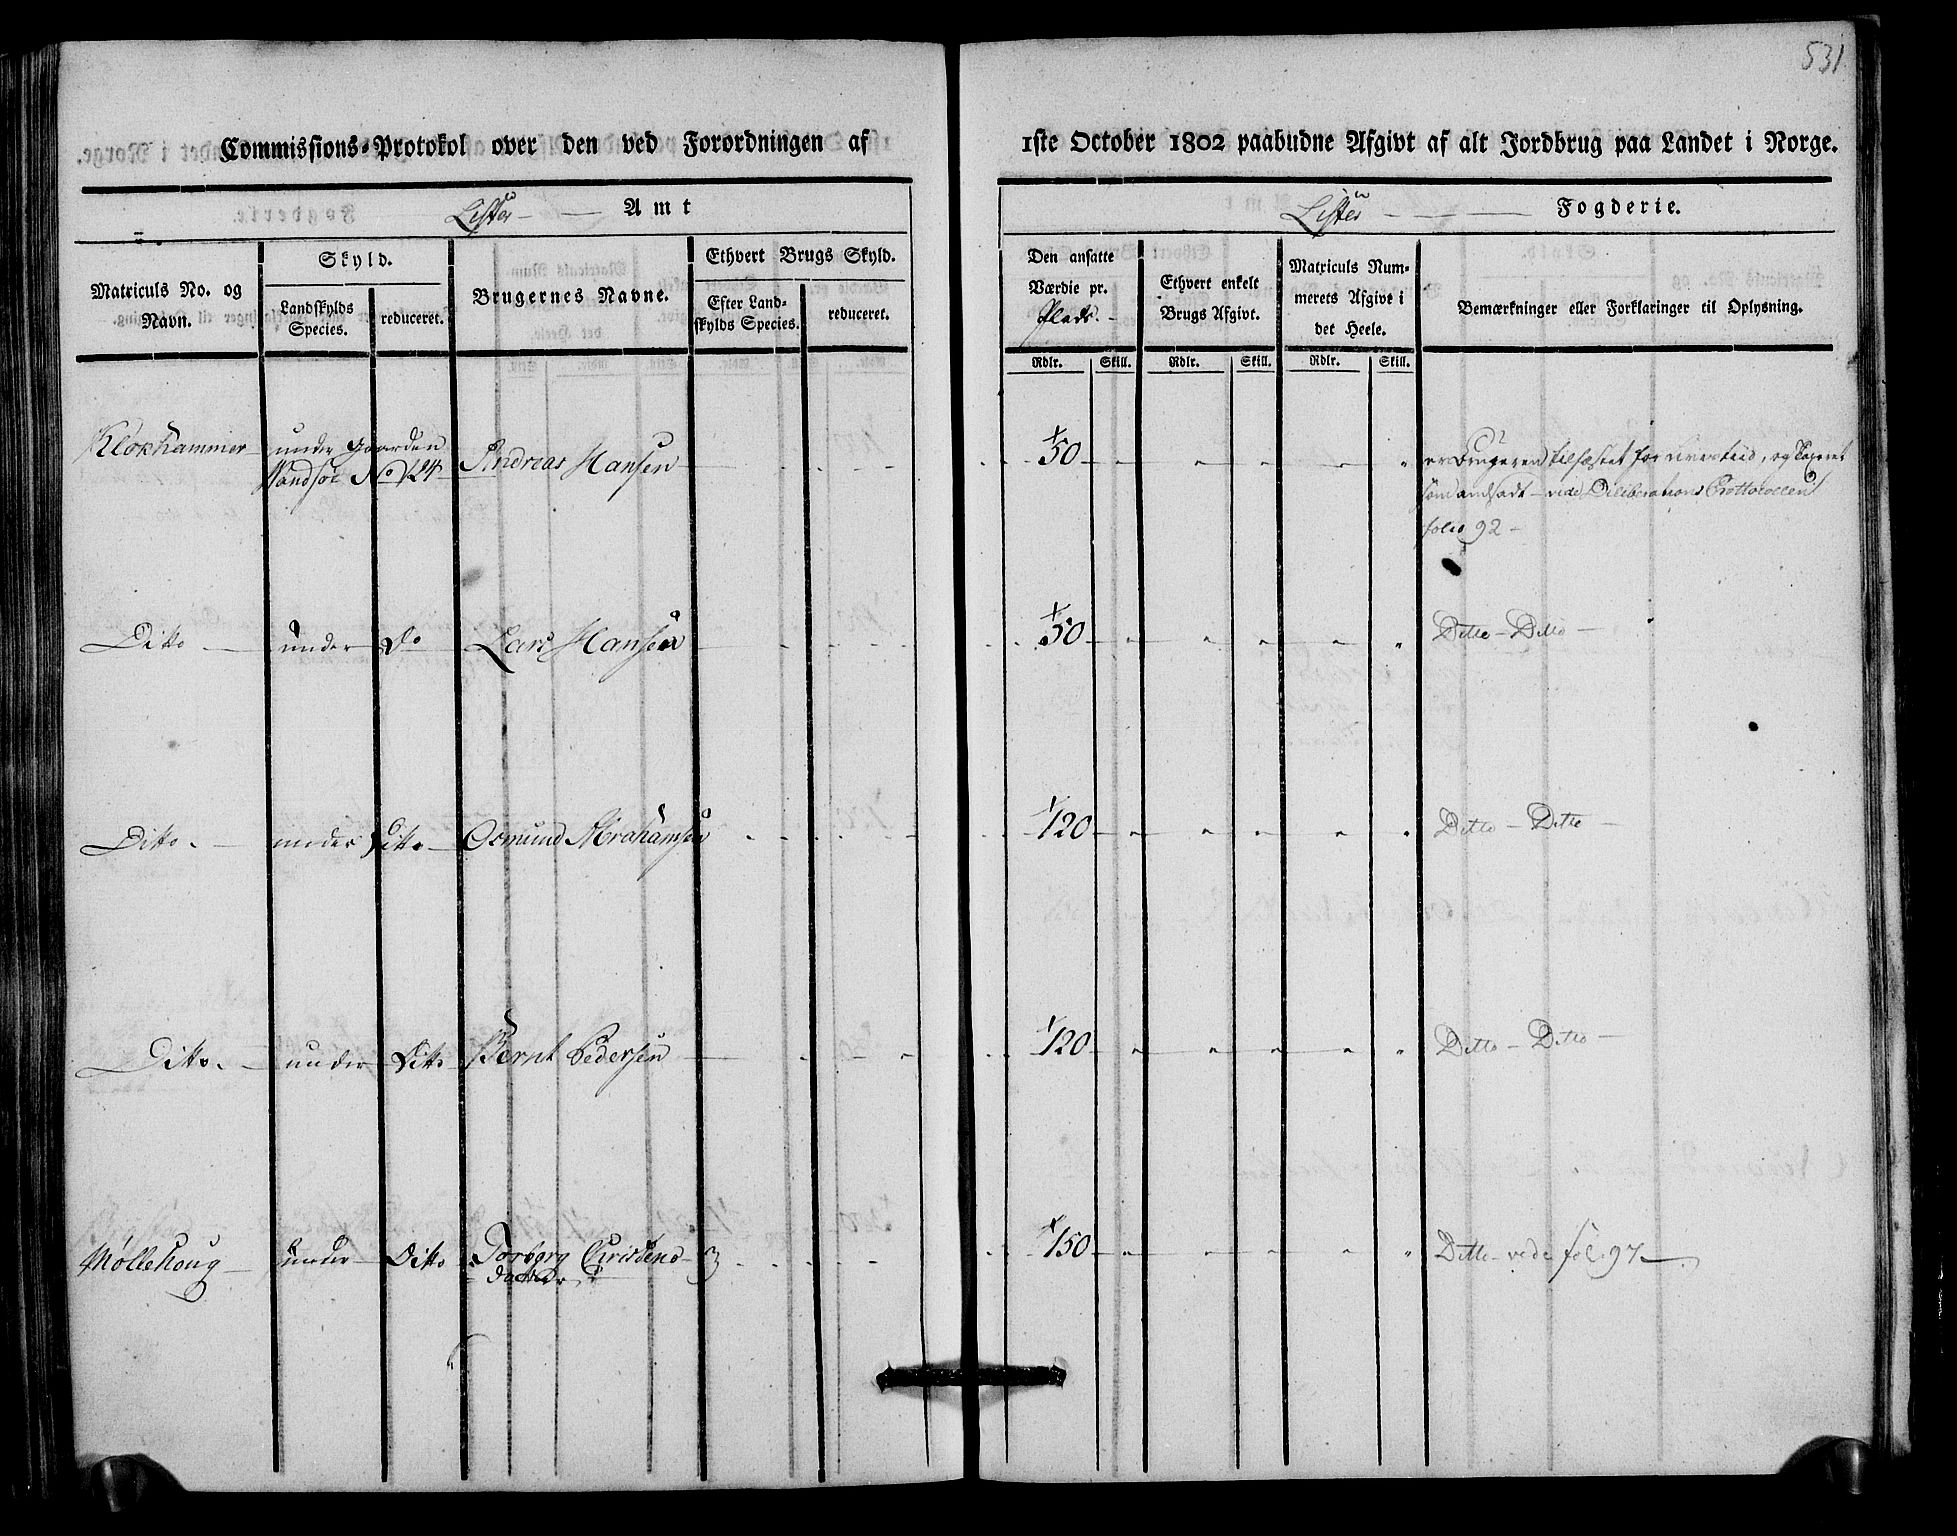 531
Commissions-Protokol over den ved Forordningen af 1ste October 1802 paabudne Afgivt af alt Jordbrug paa Landet i Norge.
Lister Amt
Lister Fogderie.
Matriculs No. og Navn.
Skyld.
Landskylds Species.
reduceret.
Brugernes Navne.
Ethvert Brugs Skyld.
Efter Landskylds Species.
reduceret.
Den ansatte Værdie pr. Plads.
Ethvert enkelt Brugs Afgivt.
Matriculs Nummerets Afgivt i det Heele.
Bemærkninger eller Forklaringer til Oplysning.
Rdlr. Skill. Rdlr. Skill. Rdlr. Skill.
Klokhammer under gaarden Andreas Hansen 50 er Brugeren tilfæstet for Livestiid, og Taxeret
No 124 som andsadt vide Deliberations Prottocollen
folio 92
Ditto under Do Lars Hansen 50 Ditto Ditto
Ditto under Ditto Osmund Abrahamsen 120 Ditto Ditto
Ditto under Ditto Bernt Pedersen 120 Ditto Ditto
Møllehoug under Ditto Torborg Christens 150 Ditto vide fol. 97
datter